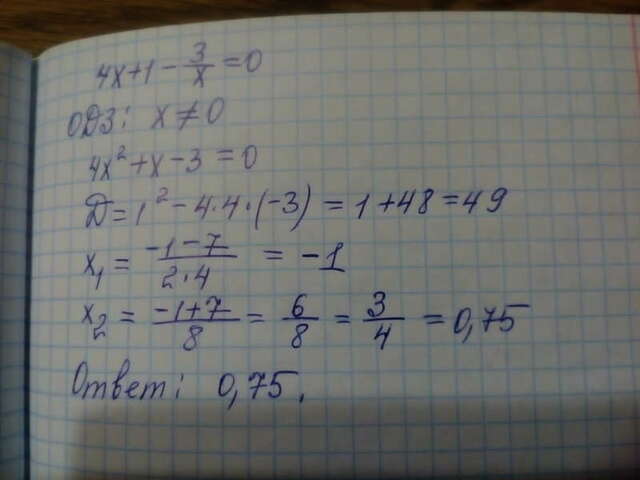 4x+1-3/x=0
ОДЗ: x≠0
4x²+x-3=0
D=1²-4·4·(-3)=1+48=49
x₁=(-1-7)/(2·4)=-1
x₂=(-1+7)/8=6/8=3/4=0,75
Ответ: 0,75.